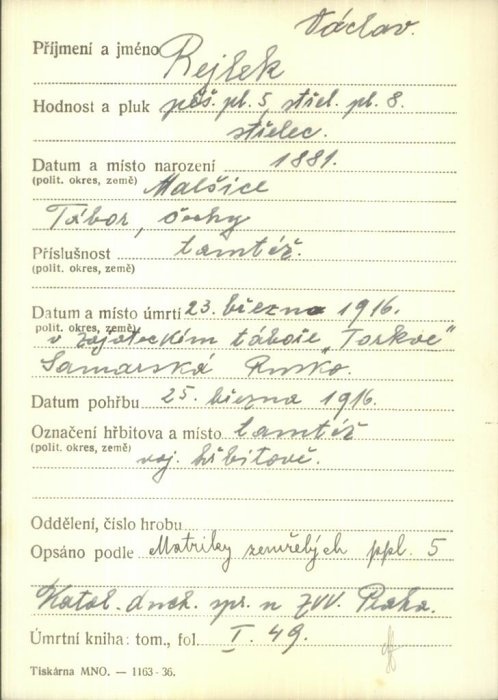 Václav.
Příjmení a jméno Rejlek
Hodnost a pluk pěš. pl. 5, střel. pl. 8.
střelec.
Datum a místo narození 1881.
(polit. okres, země) Malšice
Tábor, čechy
Příslušnost tamtéž.
(polit. okres, země)
Datum a místo úmrtí 23. března 1916.
polit. okres, země) v zajateckém táboře „Torkoe"
Samarská Rusko.
Datum pohřbu 25. března 1916.
Označení hřbitova a místo tamtéž
(polit. okres, země) voj. hřbitově.
Oddělení, číslo hrobu
Opsáno podle Matriky zemřelých ppl. 5
Katol. duch. spr. u ZVV. Praha.
Úmrtní kniha: tom., fol. I. 49.
Tiskárna MNO. — 1163-36.